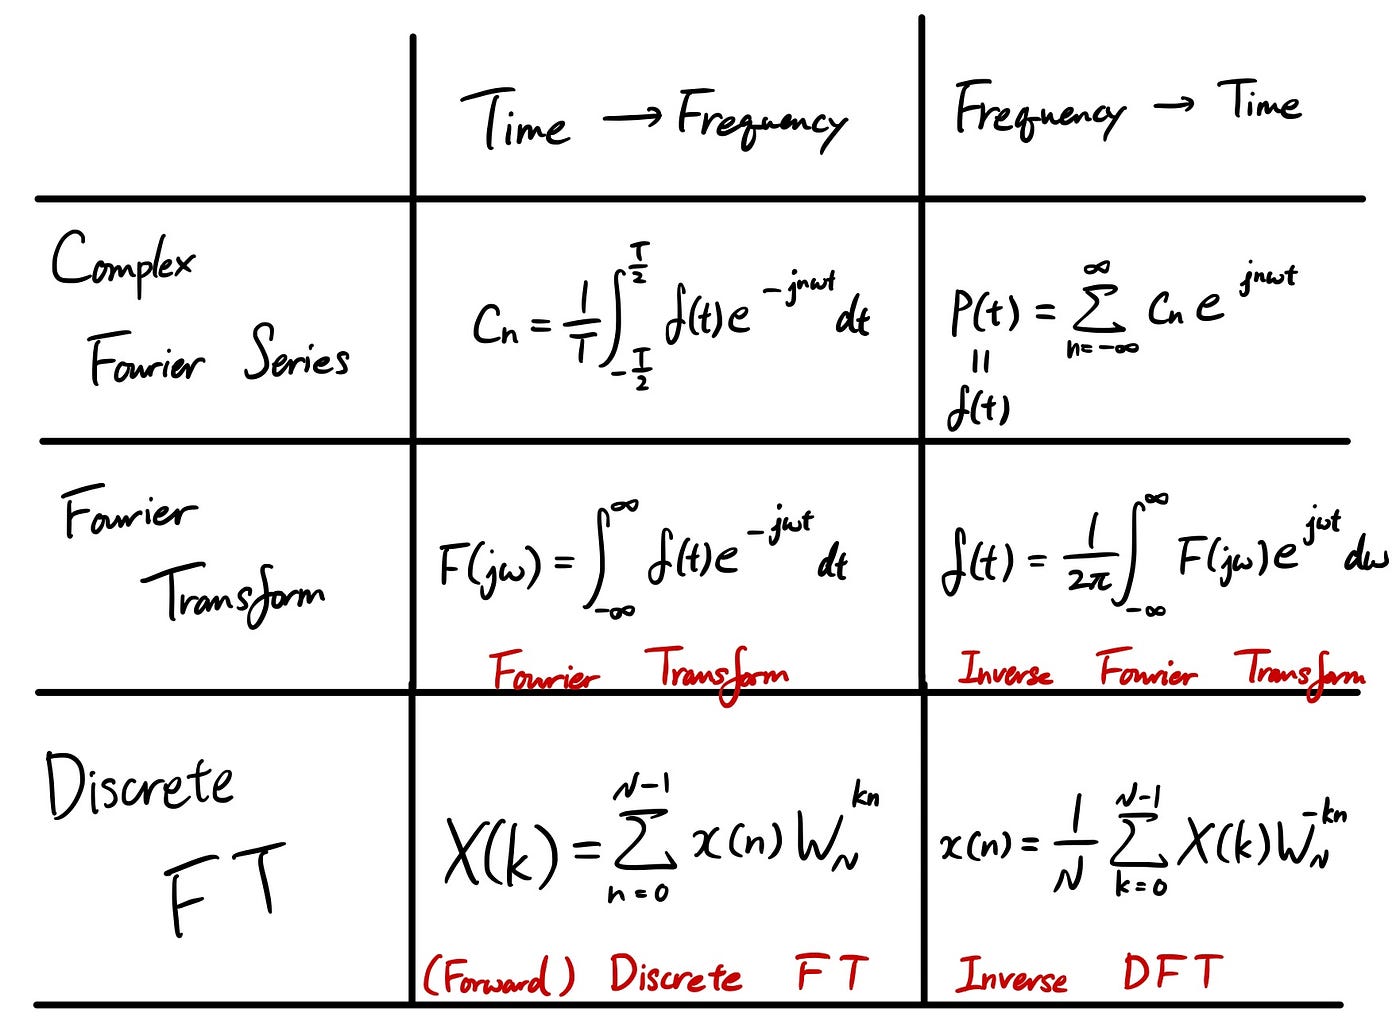 Time → Frequency
Frequency → Time
Complex
Fourier Series
Cn = 1/T ∫_{-T/2}^{T/2} f(t) e^{-jnωt} dt
P(t) = ∑_{n=-∞}^{∞} Cn e^{jnωt}
=
f(t)
Fourier
Transform
F(jω) = ∫_{-∞}^{∞} f(t) e^{-jωt} dt
Fourier Transform
f(t) = 1/2π ∫_{-∞}^{∞} F(jω) e^{jωt} dω
Inverse Fourier Transform
Discrete
FT
X(k) = ∑_{n=0}^{N-1} x(n) W_N^{kn}
(Forward) Discrete FT
x(n) = 1/N ∑_{k=0}^{N-1} X(k) W_N^{-kn}
Inverse DFT